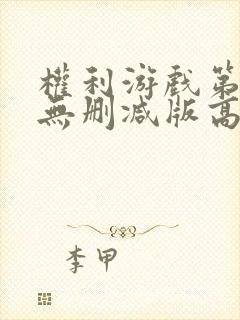 權利游戲第
無刪減版高
李甲